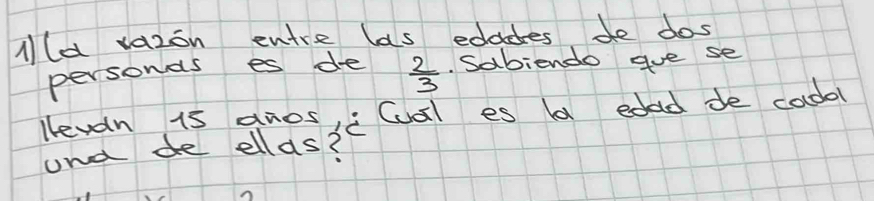 1) La razón entre las edades de dos
personas es de 2/3. Sabiendo que se
llevan 15 años, ¿Cuál es la edad de cada
una de ellas?